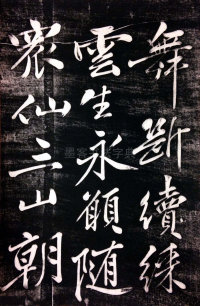 舞斷續綵
雲生永願隨
衆仙三山朝